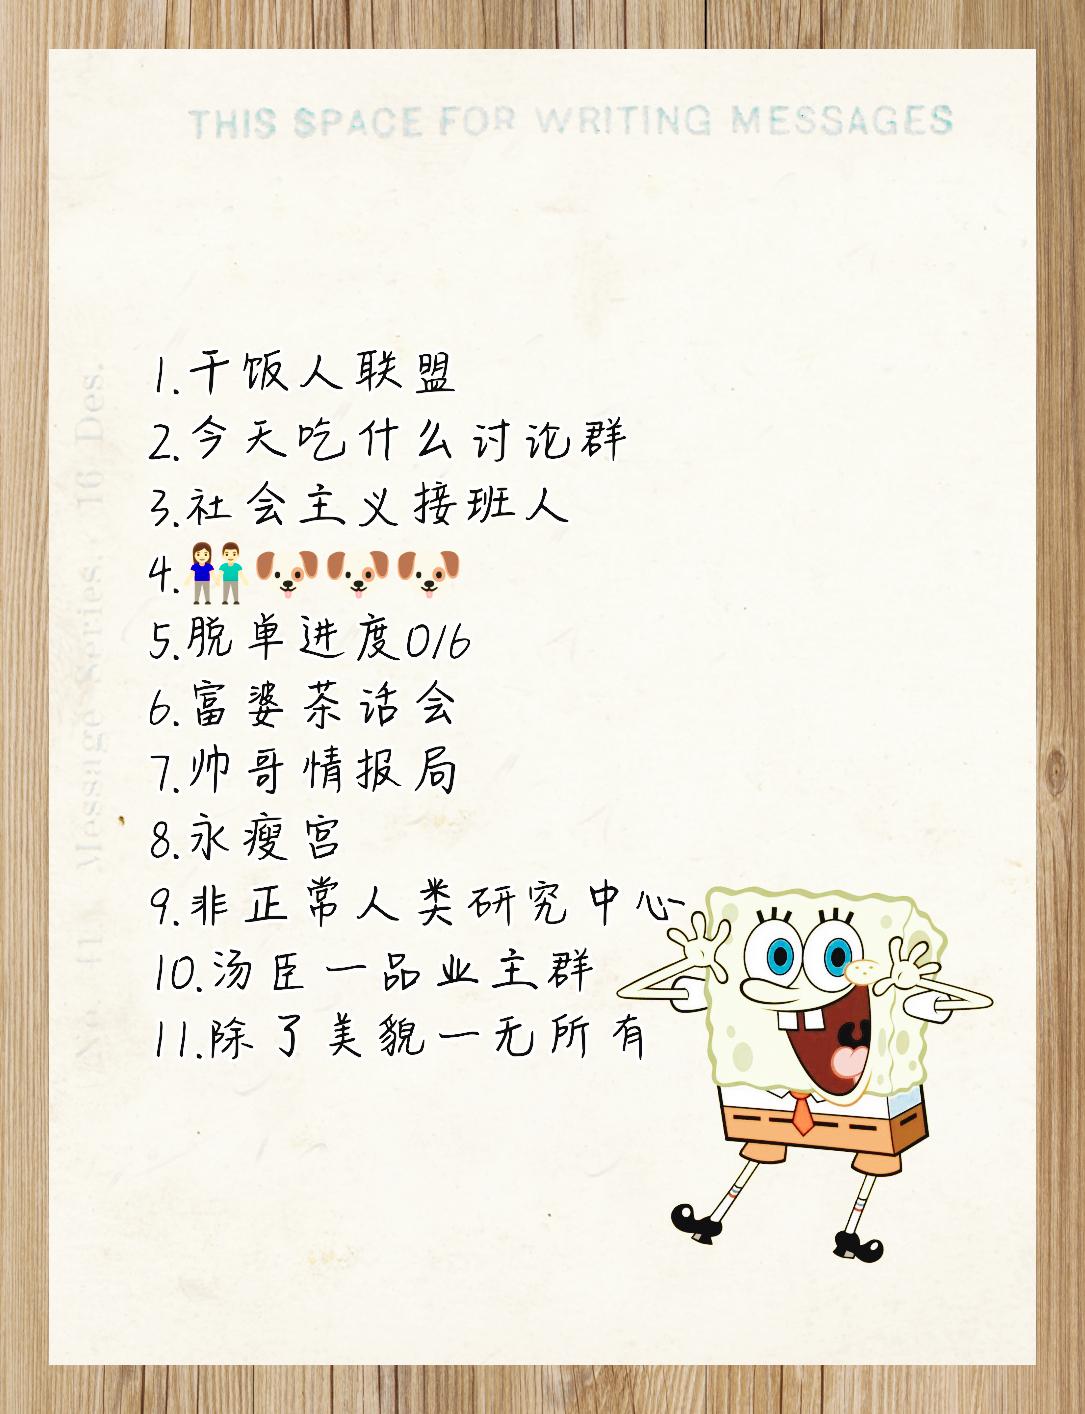 THIS SPACE FOR WRITING MESSAGES
1.干饭人联盟
2.今天吃什么讨论群
3.社会主义接班人
4.👫🐶🐶🐶
5.脱单进度0/6
6.富婆茶话会
7.帅哥情报局
8.永瘦宫
9.非正常人类研究中心
10.汤臣一品业主群
11.除了美貌一无所有
Message Series. 16 Des.